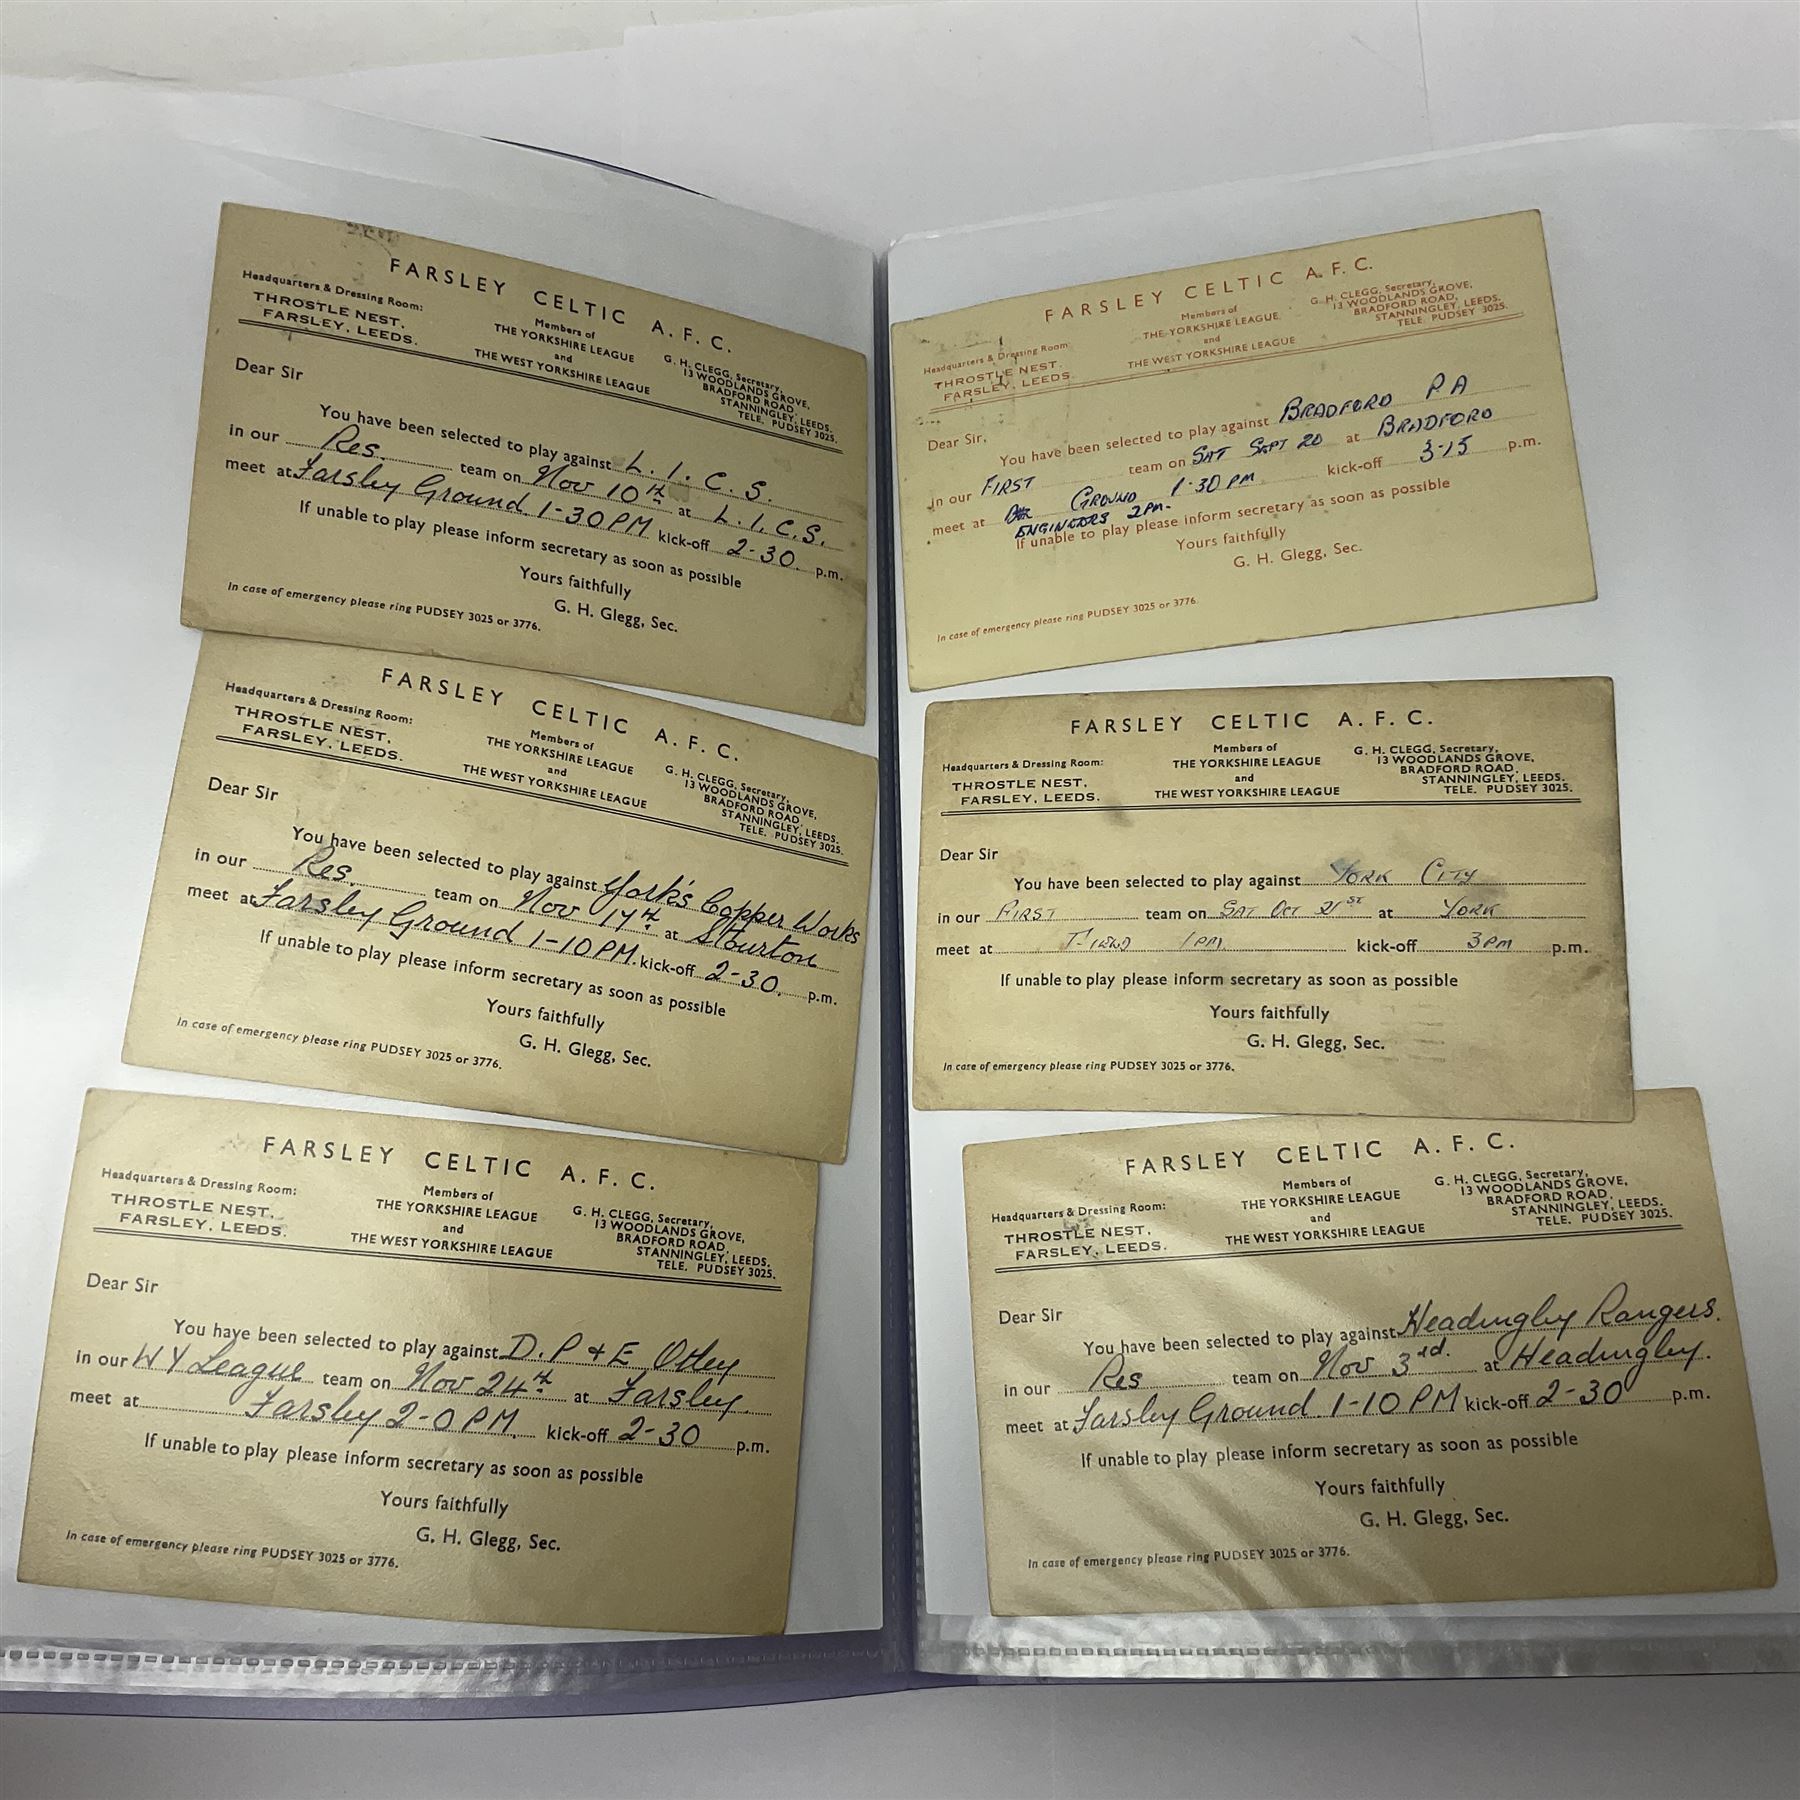 FARSLEY CELTIC A. F. C.
Headquarters & Dressing Room:
THROSTLE NEST,
FARSLEY, LEEDS.
Members of
THE YORKSHIRE LEAGUE
and
THE WEST YORKSHIRE LEAGUE
G. H. CLEGG, Secretary,
13 WOODLANDS GROVE,
BRADFORD ROAD,
STANNINGLEY, LEEDS.
TELE. PUDSEY 3025.
Dear Sir
You have been selected to play against L. I. C. S.
in our Res. team on Nov 10th at L. I. C. S.
meet at Farsley Ground 1-30 PM kick-off 2-30. p.m.
If unable to play please inform secretary as soon as possible
Yours faithfully
G. H. Glegg, Sec.
In case of emergency please ring PUDSEY 3025 or 3776.
FARSLEY CELTIC A. F. C.
Headquarters & Dressing Room:
THROSTLE NEST,
FARSLEY, LEEDS.
Members of
THE YORKSHIRE LEAGUE
and
THE WEST YORKSHIRE LEAGUE
G. H. CLEGG, Secretary,
13 WOODLANDS GROVE,
BRADFORD ROAD,
STANNINGLEY, LEEDS.
TELE. PUDSEY 3025.
Dear Sir
You have been selected to play against York's Copper Works
in our Res. team on Nov 17th at Stourton
meet at Farsley Ground 1-10 PM. kick-off 2-30. p.m.
If unable to play please inform secretary as soon as possible
Yours faithfully
G. H. Glegg, Sec.
In case of emergency please ring PUDSEY 3025 or 3776.
FARSLEY CELTIC A. F. C.
Headquarters & Dressing Room:
THROSTLE NEST,
FARSLEY, LEEDS.
Members of
THE YORKSHIRE LEAGUE
and
THE WEST YORKSHIRE LEAGUE
G. H. CLEGG, Secretary,
13 WOODLANDS GROVE,
BRADFORD ROAD,
STANNINGLEY, LEEDS.
TELE. PUDSEY 3025.
Dear Sir
You have been selected to play against D. P & E Otley
in our W Y League team on Nov 24th at Farsley
meet at Farsley 2-0 PM. kick-off 2-30 p.m.
If unable to play please inform secretary as soon as possible
Yours faithfully
G. H. Glegg, Sec.
In case of emergency please ring PUDSEY 3025 or 3776.
FARSLEY CELTIC A. F. C.
Headquarters & Dressing Room
THROSTLE NEST,
FARSLEY, LEEDS.
Members of
THE YORKSHIRE LEAGUE
and
THE WEST YORKSHIRE LEAGUE
G. H. CLEGG, Secretary,
13 WOODLANDS GROVE,
BRADFORD ROAD,
STANNINGLEY, LEEDS.
TELE. PUDSEY 3025.
Dear Sir,
You have been selected to play against BRADFORD P A
in our FIRST team on SAT SEPT 20 at BRADFORD
meet at GROUND 1-30 PM kick-off 3-15 p.m.
ENGINEERS 2PM.
If unable to play please inform secretary as soon as possible
Yours faithfully
G. H. Glegg, Sec.
In case of emergency please ring PUDSEY 3025 or 3776.
FARSLEY CELTIC A. F. C.
Headquarters & Dressing Room:
THROSTLE NEST,
FARSLEY, LEEDS.
Members of
THE YORKSHIRE LEAGUE
and
THE WEST YORKSHIRE LEAGUE
G. H. CLEGG, Secretary,
13 WOODLANDS GROVE,
BRADFORD ROAD,
STANNINGLEY, LEEDS.
TELE. PUDSEY 3025.
Dear Sir
You have been selected to play against YORK CITY
in our FIRST team on SAT OCT 21ST at YORK
meet at FIELD 1 PM kick-off 3 PM p.m.
If unable to play please inform secretary as soon as possible
Yours faithfully
G. H. Glegg, Sec.
In case of emergency please ring PUDSEY 3025 or 3776.
FARSLEY CELTIC A. F. C.
Headquarters & Dressing Room:
THROSTLE NEST,
FARSLEY, LEEDS.
Members of
THE YORKSHIRE LEAGUE
and
THE WEST YORKSHIRE LEAGUE
G. H. CLEGG, Secretary,
13 WOODLANDS GROVE,
BRADFORD ROAD,
STANNINGLEY, LEEDS.
TELE. PUDSEY 3025.
Dear Sir
You have been selected to play against Headingley Rangers.
in our Res team on Nov 3rd. at Headingley.
meet at Farsley Ground 1-10 PM kick-off 2-30 p.m.
If unable to play please inform secretary as soon as possible
Yours faithfully
G. H. Glegg, Sec.
In case of emergency please ring PUDSEY 3025 or 3776.